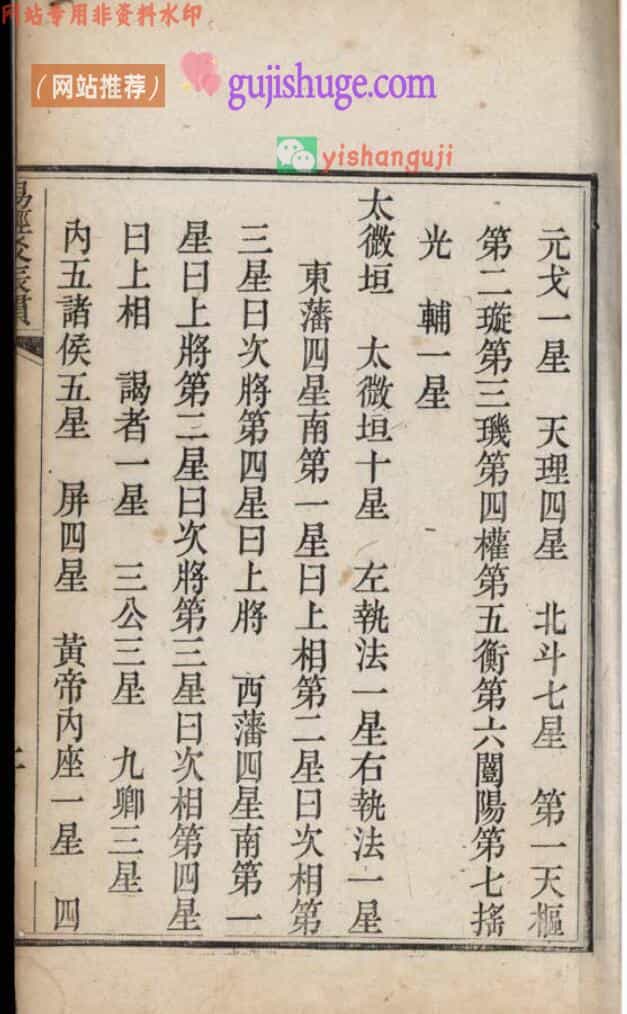 网站专用非资料水印
（网站推荐）
gujishuge.com
yishanguji
元戈一星　天理四星　北斗七星　第一天樞
第二璇第三璣第四權第五衡第六闓陽第七搖
光　輔一星
太微垣　太微垣十星　左執法一星右執法一星
東藩四星南第一星曰上相第二星曰次相第
三星曰次將第四星曰上將　西藩四星南第一
星曰上將第二星曰次將第三星曰次相第四星
曰上相　謁者一星　三公三星　九卿三星
內五諸侯五星　屏四星　黃帝內座一星　四